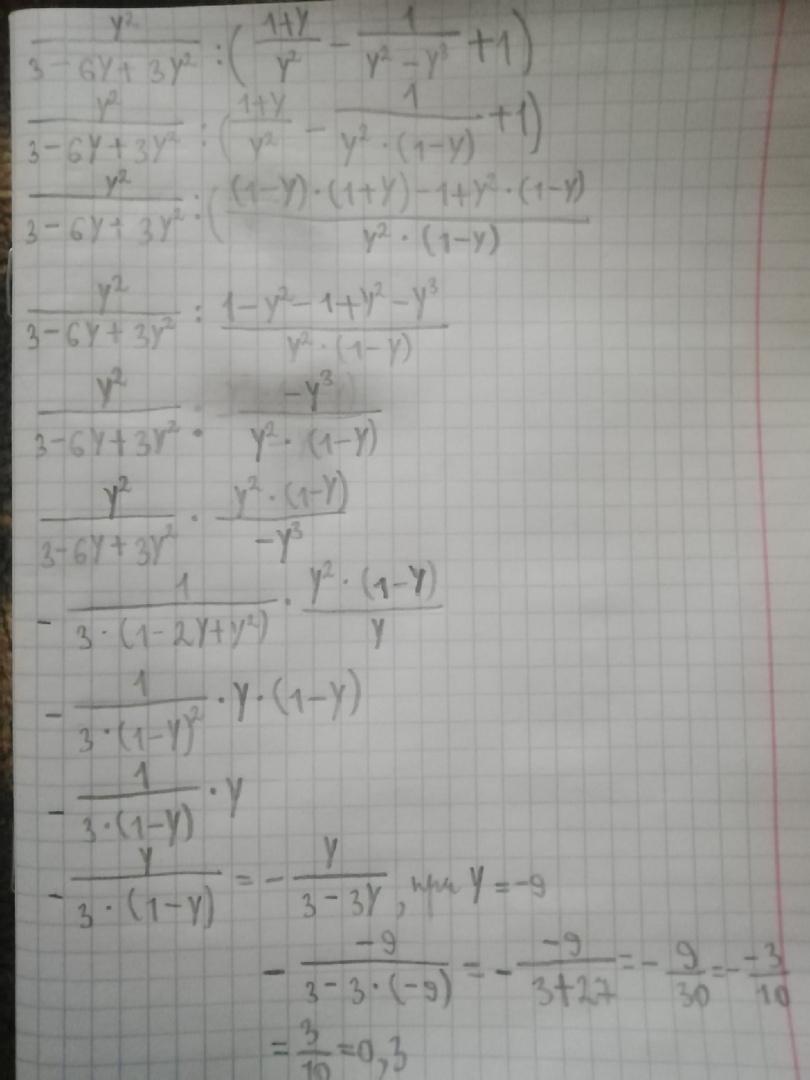 y²/(3 − 6y + 3y²) : ((1+y)/y² − 1/(y² − y³) + 1)
y²/(3 − 6y + 3y²) : ((1+y)/y² − 1/(y² · (1−y)) + 1)
y²/(3 − 6y + 3y²) : (((1−y)·(1+y) − 1 + y² · (1−y))/(y² · (1−y))
y²/(3 − 6y + 3y²) : (1 − y² − 1 + y² − y³)/(y² · (1−y))
y²/(3 − 6y + 3y²) : (−y³)/(y² · (1−y))
y²/(3 − 6y + 3y²) · (y² · (1−y))/(−y³)
− 1/(3 · (1 − 2y + y²)) · (y² · (1−y))/y
− 1/(3 · (1−y)²) · y · (1−y)
− 1/(3 · (1−y)) · y
− y/(3 · (1−y)) = − y/(3 − 3y), при y = −9
− (−9)/(3 − 3 · (−9)) = − (−9)/(3+27) = − 9/30 = − (−3)/10
= 3/10 = 0,3